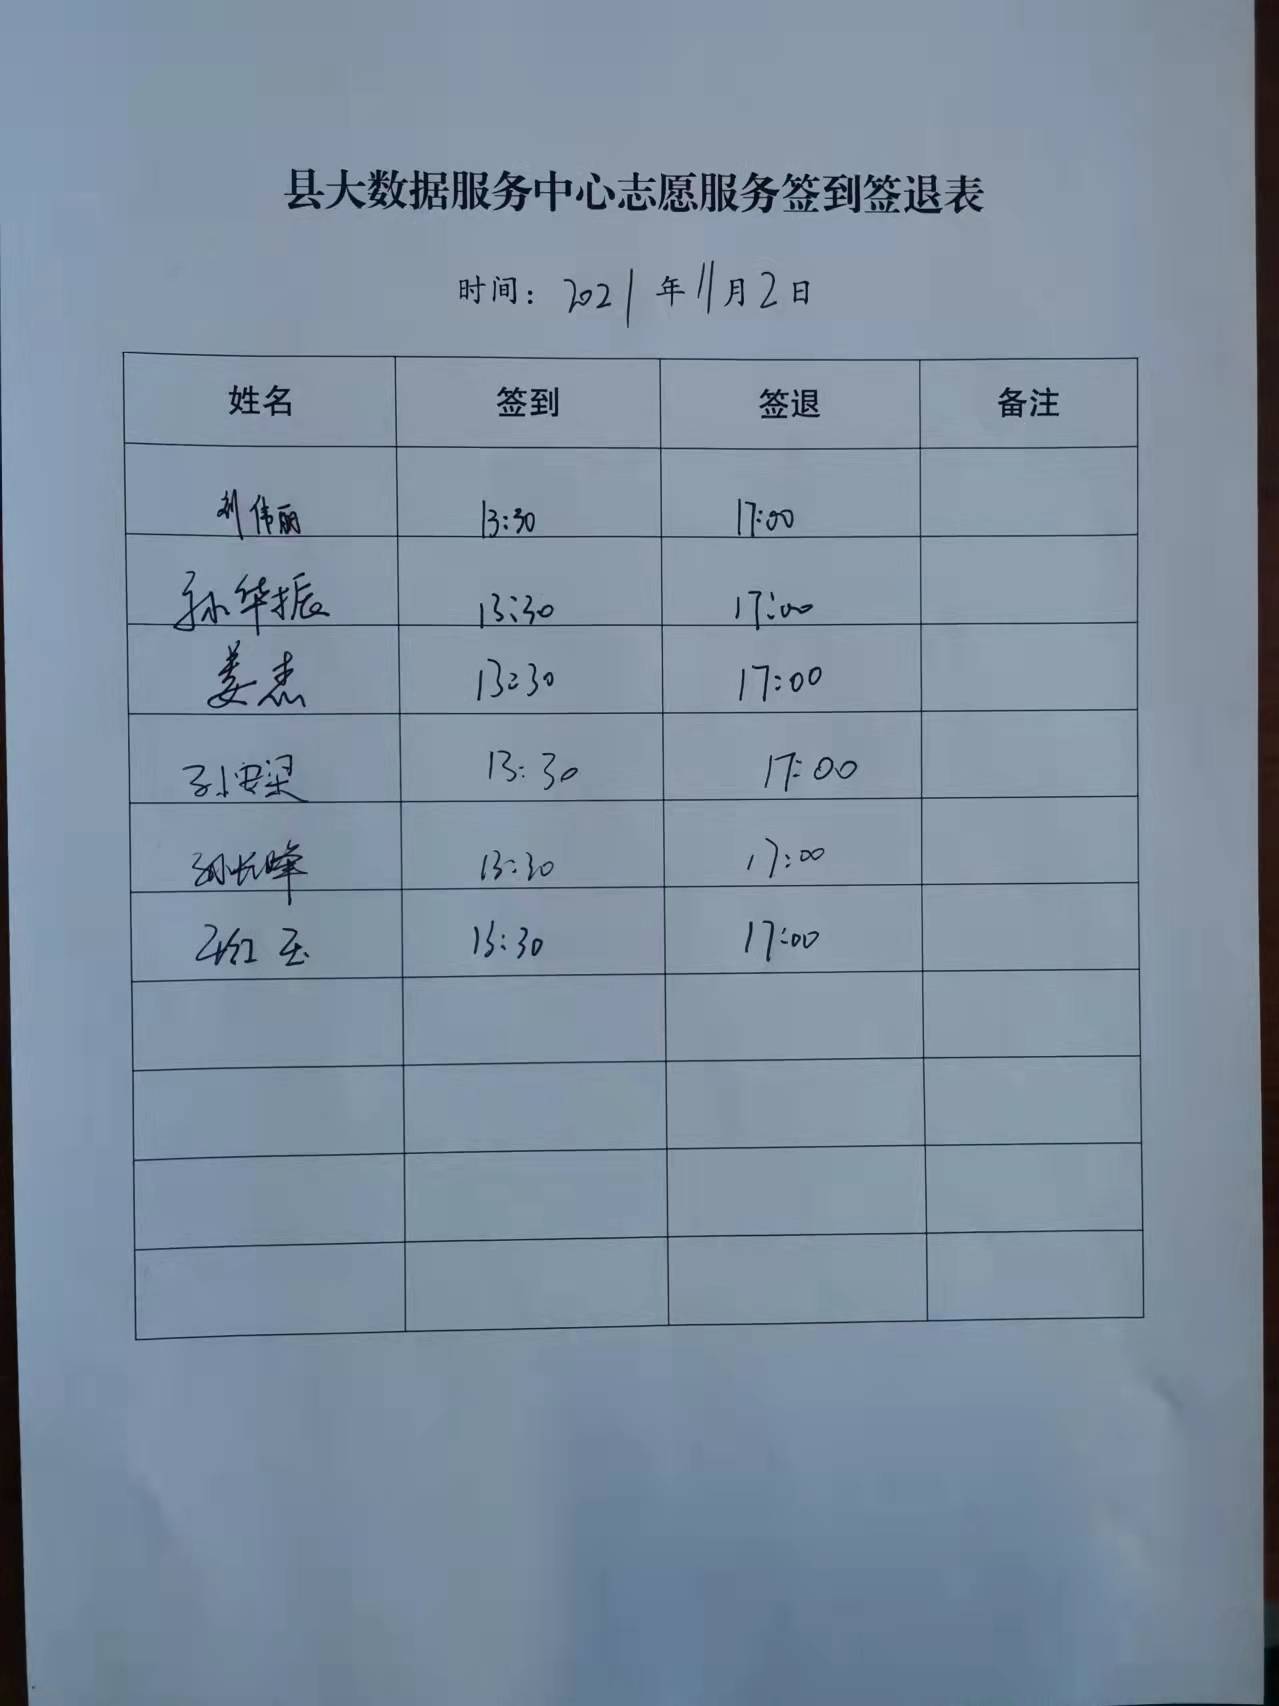 县大数据服务中心志愿服务签到签退表
时间：2021年11月2日
姓名 签到 签退 备注
刘伟丽 13:30 17:00
孙华振 13:30 17:00
姜杰 13:30 17:00
孙安梁 13:30 17:00
孙长峰 13:30 17:00
13:30 17:00